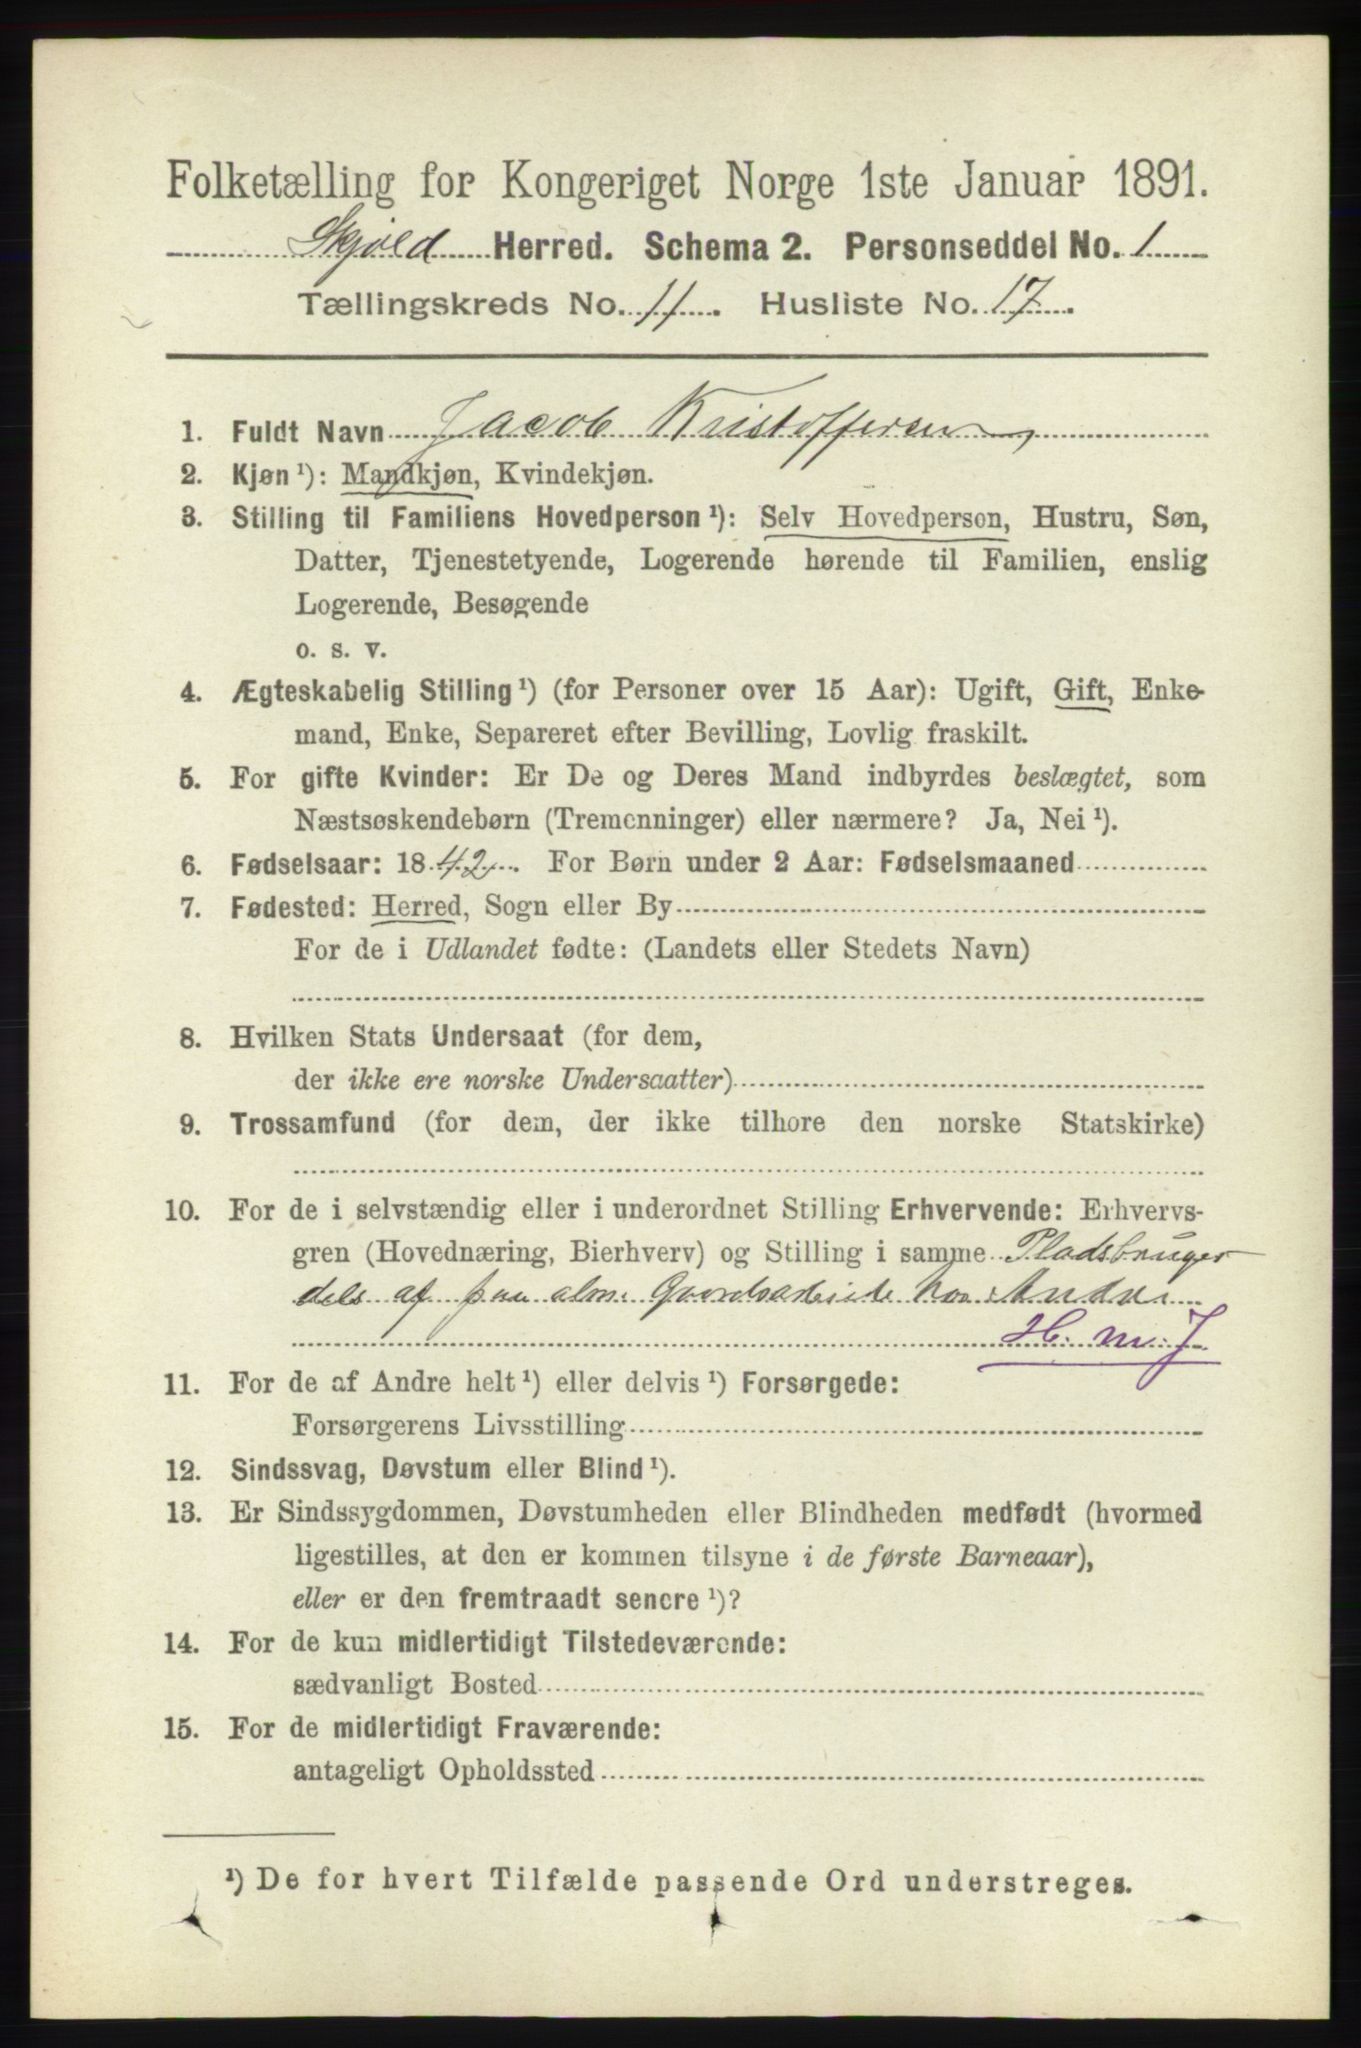 Folketælling for Kongeriget Norge 1ste Januar 1891.
Skjold Herred. Schema 2. Personseddel No. 1
Tællingskreds No. 11. Husliste No. 17.
1. Fuldt Navn Jacob Kristoffersen
2. Kjøn ¹): Mandkjøn, Kvindekjøn.
3. Stilling til Familiens Hovedperson ¹): Selv Hovedperson, Hustru, Søn,
Datter, Tjenestetyende, Logerende hørende til Familien, enslig
Logerende, Besøgende
o. s. v.
4. Ægteskabelig Stilling ¹) (for Personer over 15 Aar): Ugift, Gift, Enke-
mand, Enke, Separeret efter Bevilling, Lovlig fraskilt.
5. For gifte Kvinder: Er De og Deres Mand indbyrdes beslægtet, som
Næstsøskendebørn (Tremenninger) eller nærmere? Ja, Nei ¹).
6. Fødselsaar: 1842. For Børn under 2 Aar: Fødselsmaaned
7. Fødested: Herred, Sogn eller By
For de i Udlandet fødte: (Landets eller Stedets Navn)
8. Hvilken Stats Undersaat (for dem,
der ikke ere norske Undersaatter)
9. Trossamfund (for dem, der ikke tilhore den norske Statskirke)
10. For de i selvstændig eller i underordnet Stilling Erhvervende: Erhvervs-
gren (Hovednæring, Bierhverv) og Stilling i samme Pladsbruger
dels af paa alm. Gaardsarbeide hos Andre
H. m. J
11. For de af Andre helt ¹) eller delvis ¹) Forsørgede:
Forsørgerens Livsstilling
12. Sindssvag, Døvstum eller Blind ¹).
13. Er Sindssygdommen, Døvstumheden eller Blindheden medfødt (hvormed
ligestilles, at den er kommen tilsyne i de første Barneaar),
eller er den fremtraadt senere ¹)?
14. For de kun midlertidigt Tilstedeværende:
sædvanligt Bosted
15. For de midlertidigt Fraværende:
antageligt Opholdssted
¹) De for hvert Tilfælde passende Ord understreges.